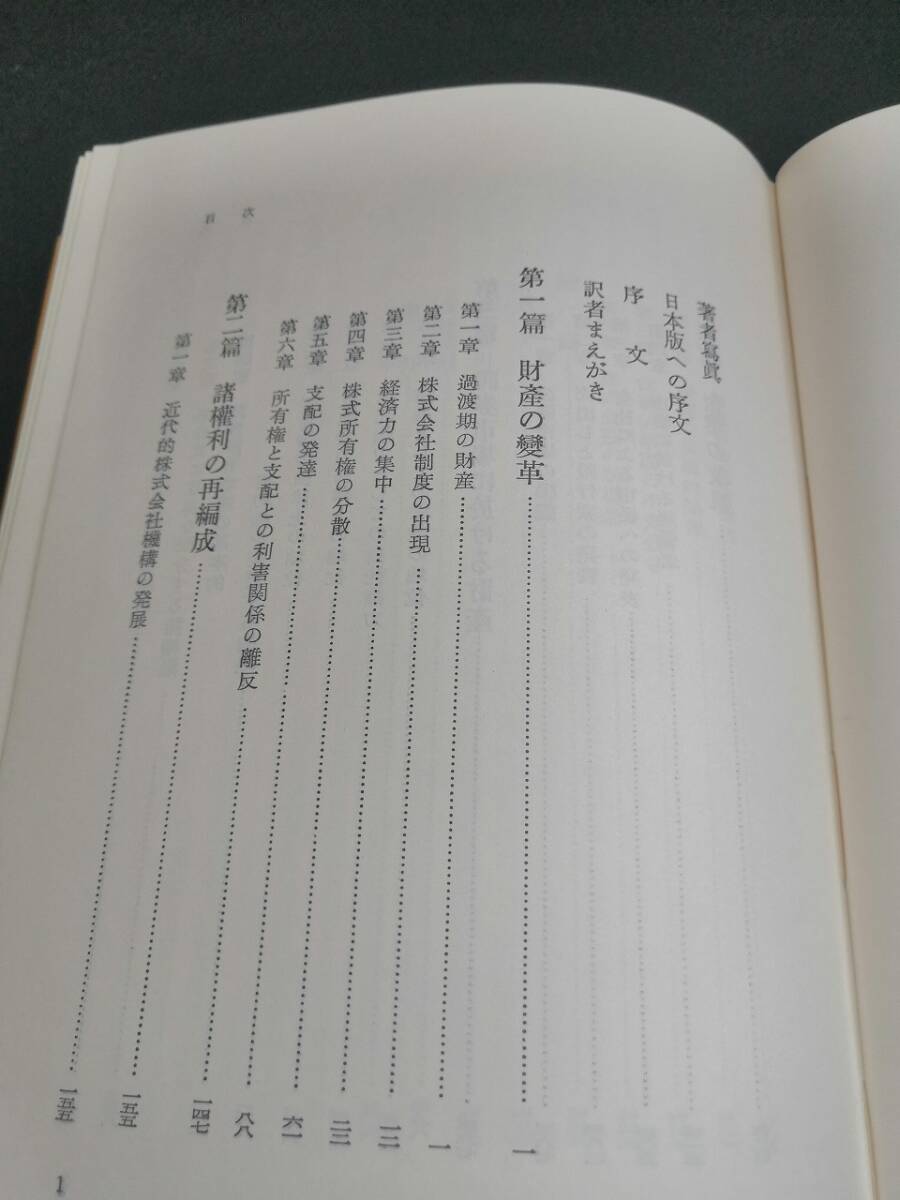 目 次
著者寫眞
日本版への序文
序 文
訳者まえがき
第一篇 財産の變革……………………一
第一章 過渡期の財産……………………一
第二章 株式会社制度の出現……………………一二
第三章 経済力の集中……………………二二
第四章 株式所有権の分散……………………六一
第五章 支配の発達……………………八八
第六章 所有権と支配との利害関係の離反……………………一四七
第二篇 諸權利の再編成……………………一五五
第一章 近代的株式会社機構の発展……………………一五五
1